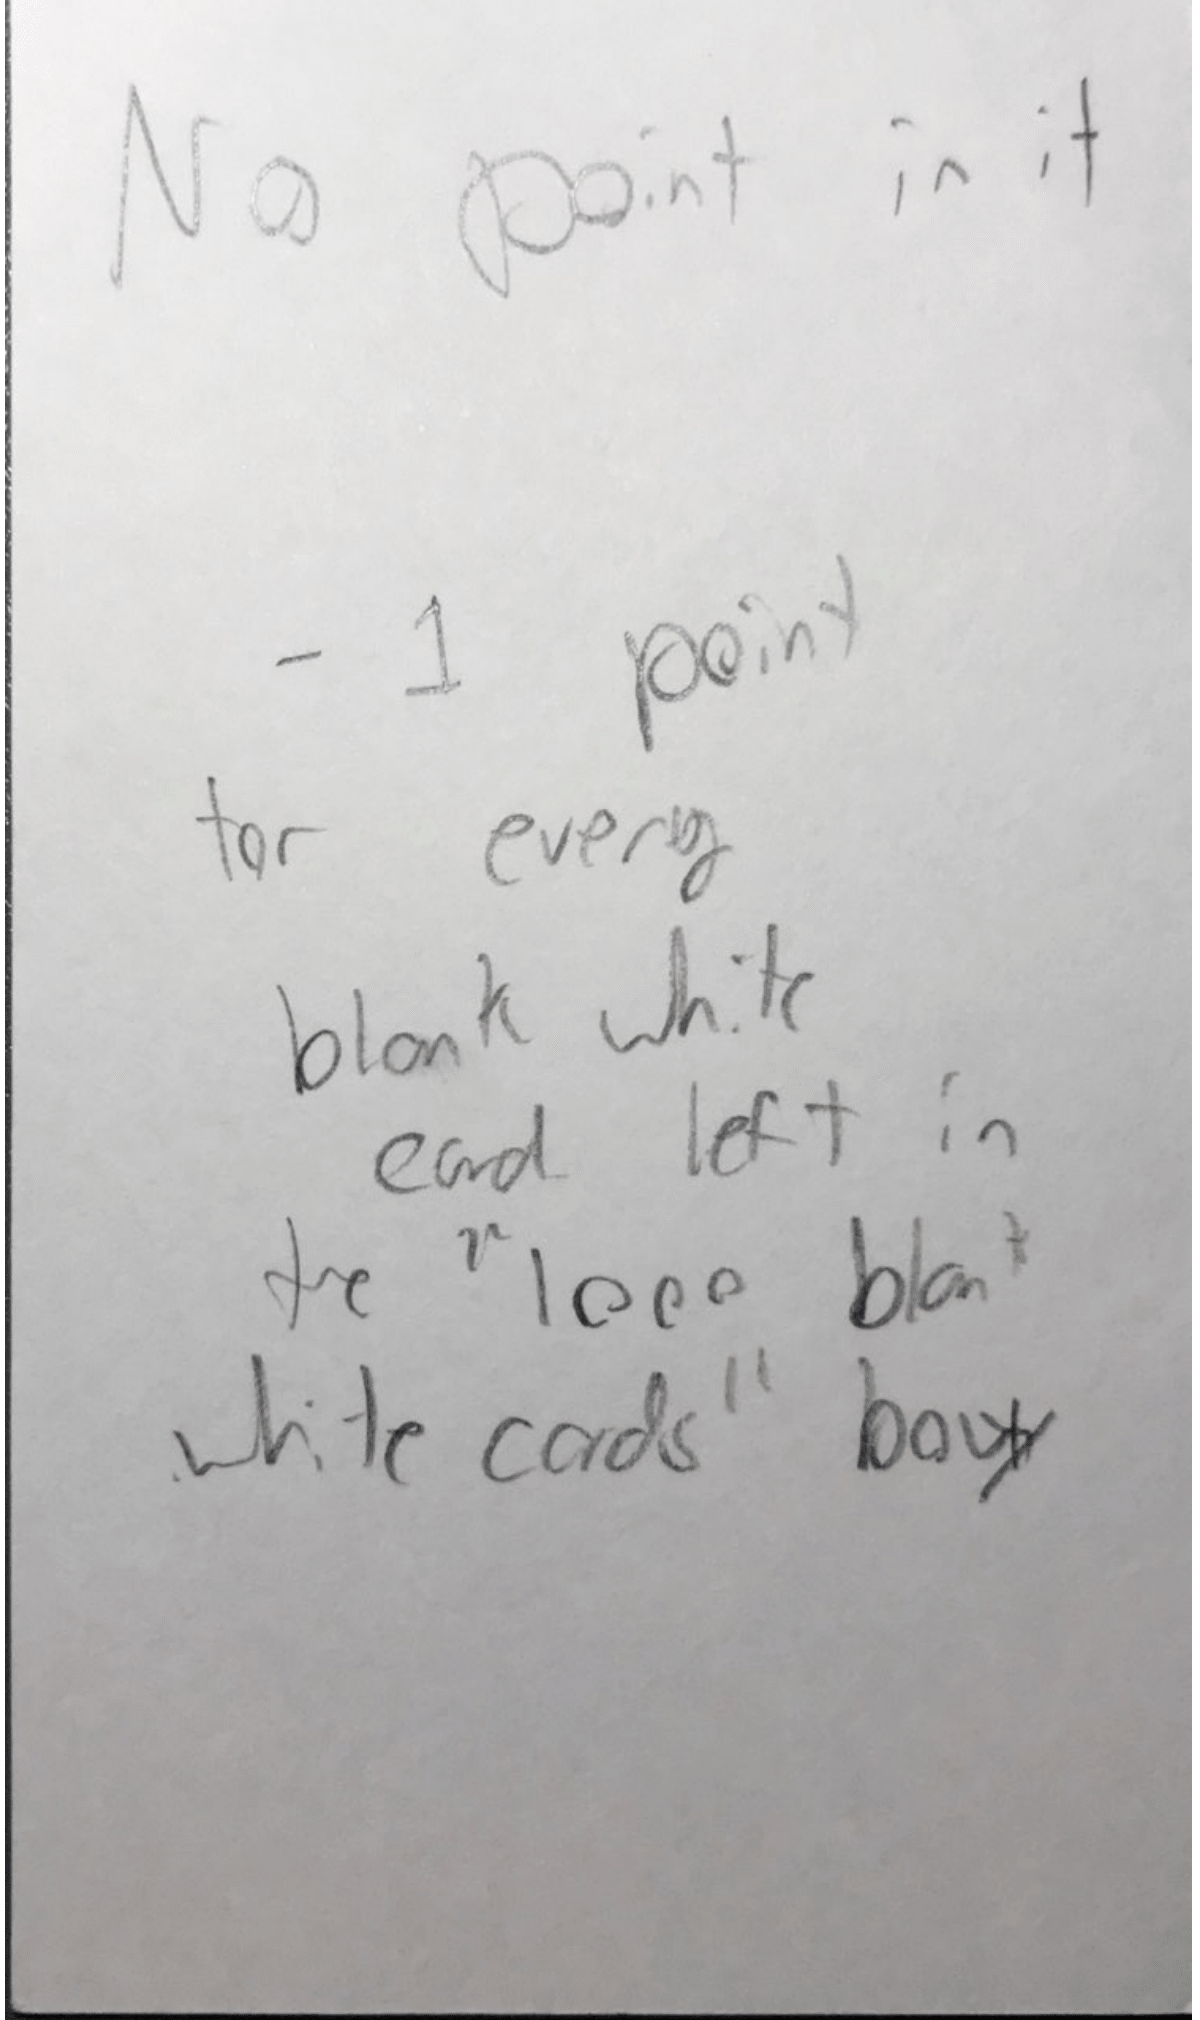 No point in it
- 1 point
for every
blank white
card left in
the "1000 blank
white cards" box